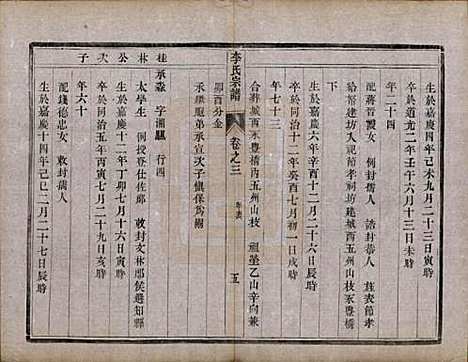 生於嘉慶十四年己巳九月二十四日未時
卒於道光二年壬午六月十三日未時
年二十四
配蔣晉霞女 例封孺人 旌表節孝
給帑建坊入節孝祠坊建城西五州山枝永豐橋
生於嘉慶六年辛酉十二月二十八日辰時
卒於同治十二年癸酉七月初八日辰時
年七十三
合葬城西永豐橋內五州山枝 祖塋乙山辛向兼
卯酉分金
承繼胞弟承宣次子慎保爲嗣
李氏宗譜
卷之三
年表
五
桂林公次子
承淼 字湘颿 行四
太學生 例授登仕佐郎 敕封文林郎候選知縣
生於嘉慶十二年丁卯七月十六日寅時
卒於同治五年丙寅七月二十九日亥時
年六十
配錢德忠女 敕封孺人
生於嘉慶十四年己巳二月二十七日辰時